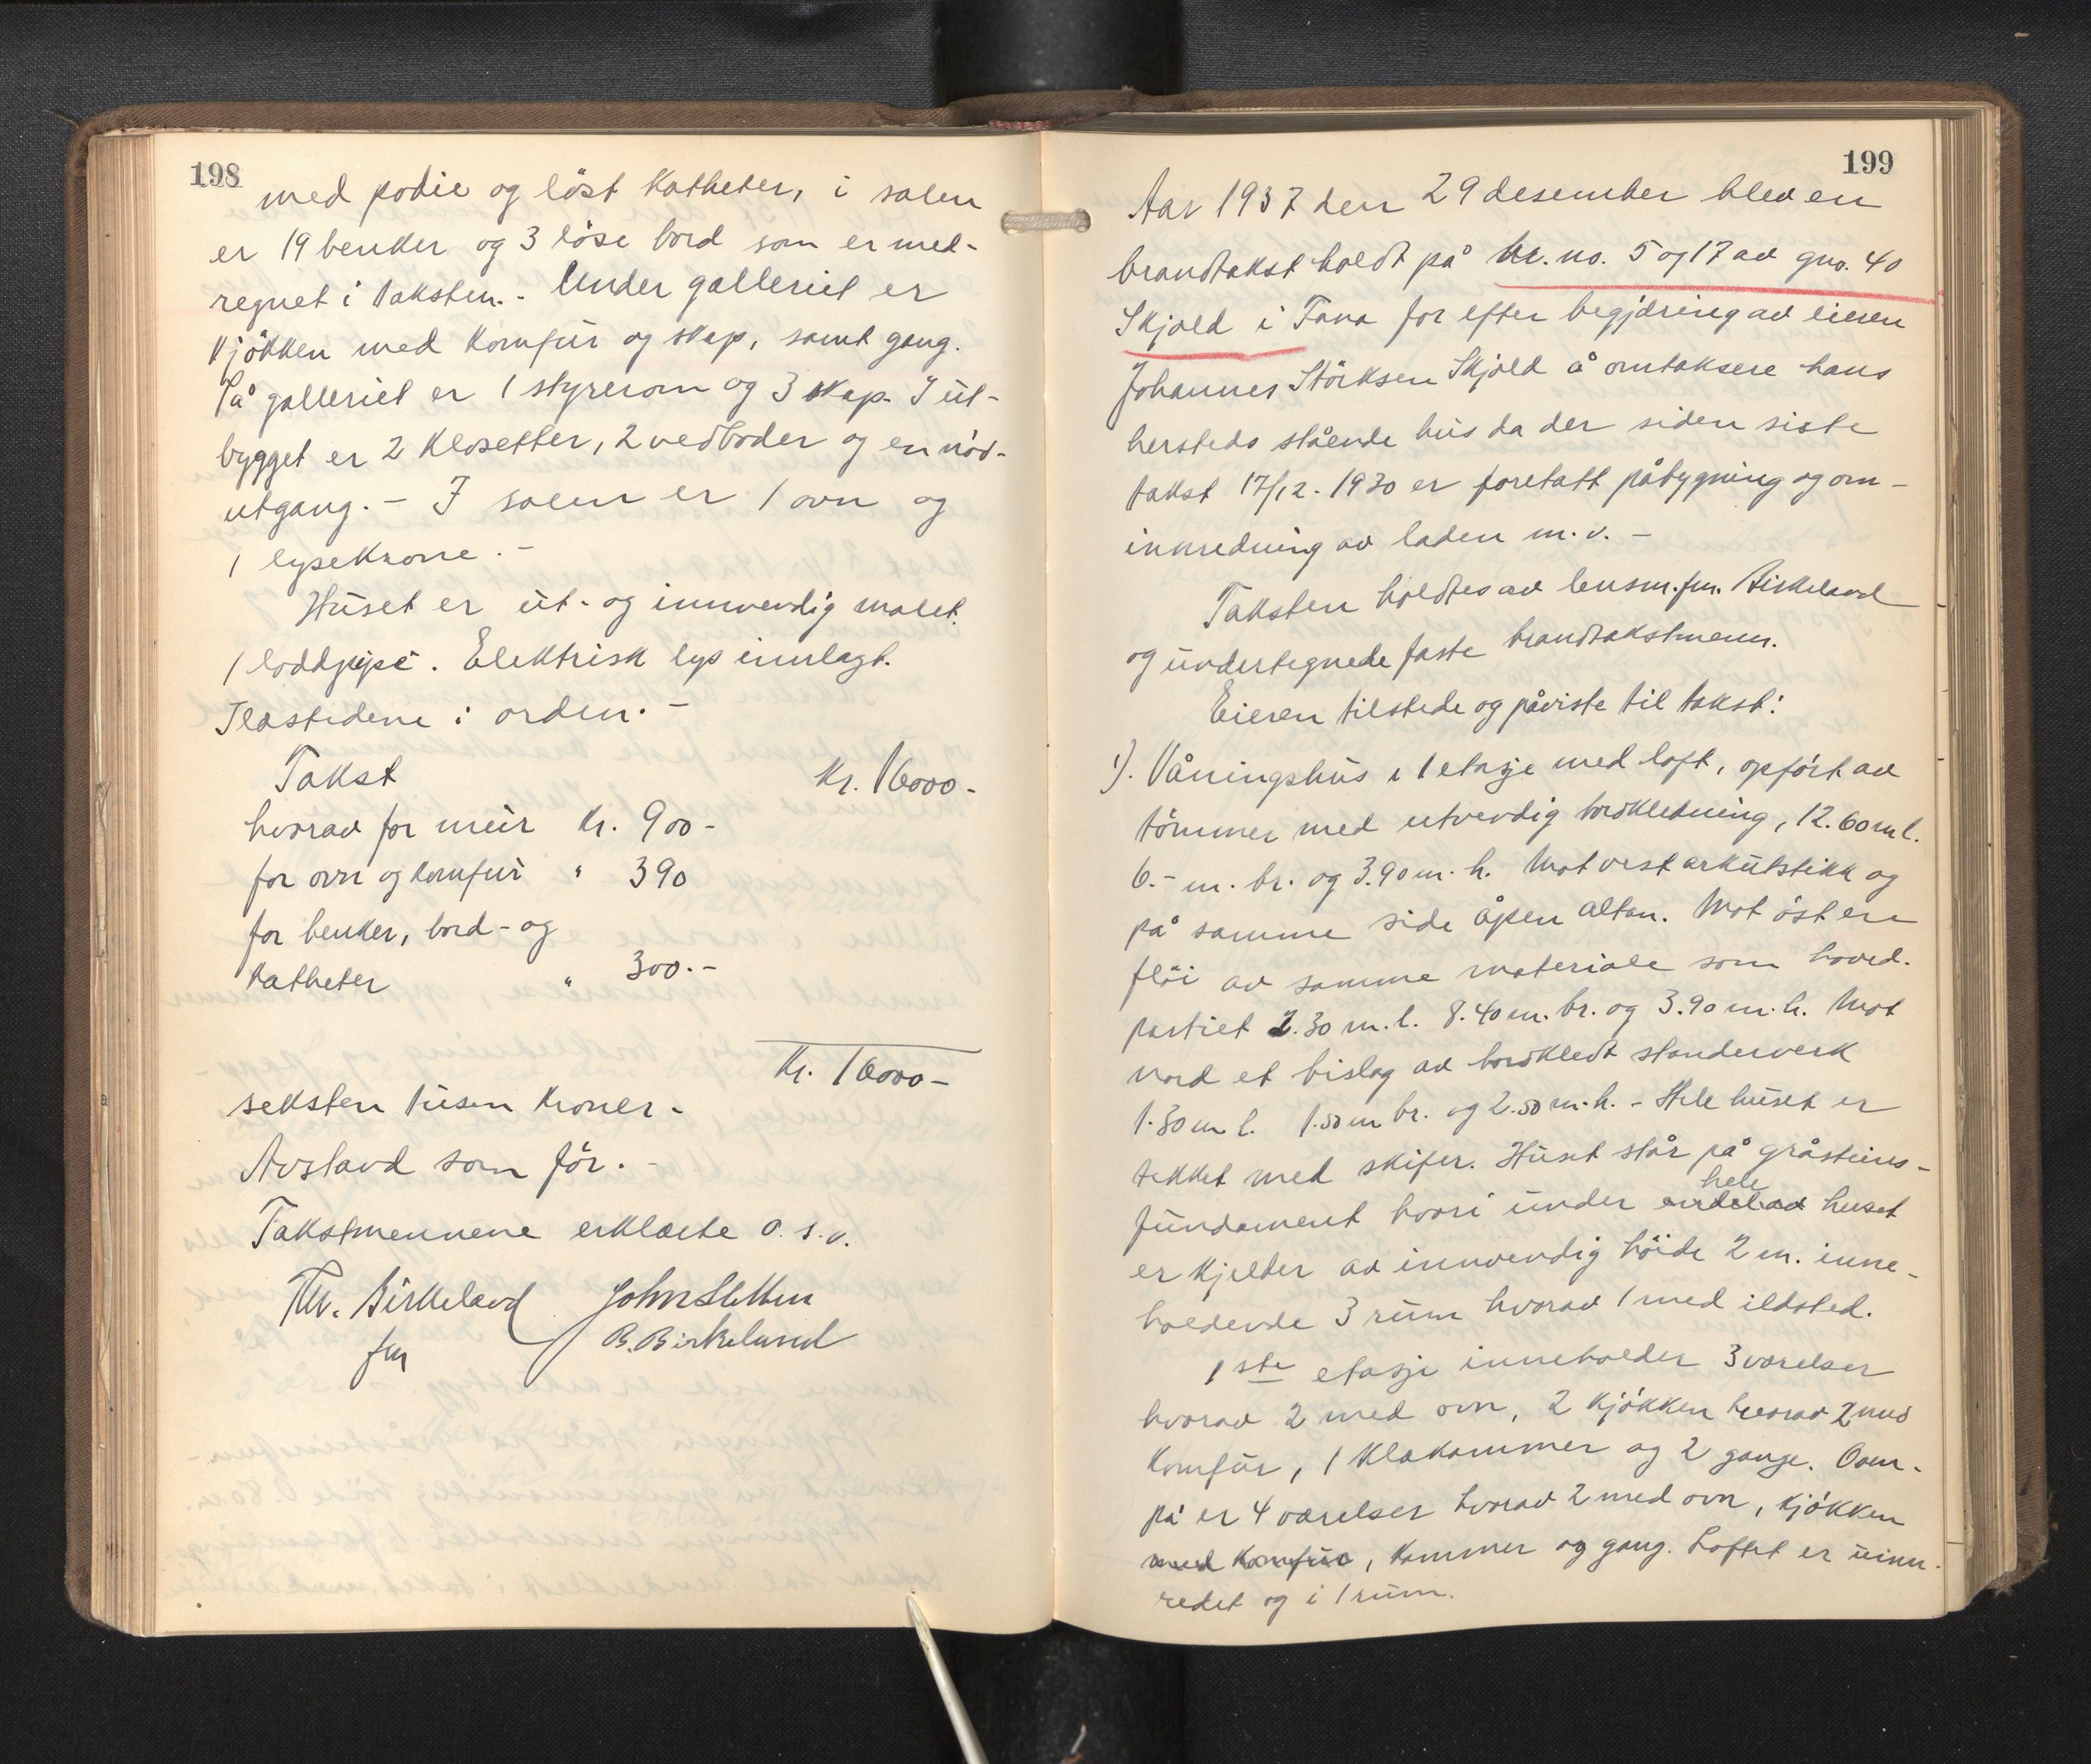 198
med podie og löst Katheter, i salen
er 19 benker og 3 löse bord som er med-
regnet i taksten. - Under galleriet er
Kjökken med Komfur og skap, samt gang.
På galleriet er 1 styrerom og 3 skap. I ut-
bygget er 2 Klosetter, 2 vedboder og en nöd-
utgang. - I salen er 1 ovn og
1 lysekrone. -
Huset er ut- og innvendig malet.
1 loddpipe. Elektrisk lys innlagt.
Ildstedene i orden. -
Takst Kr. 16000-
hvorav for mur Kr. 900-
for ovn og Komfur " 390
for benker, bord- og
Katheter " 300.-
Kr. 16000-
seksten tusen Kroner-
Avstand som för. -
Takstmennene erklærte o. s. v.
Th. Birkeland John Sletten
fm B. Birkelund
199
Aar 1937 den 29 desember blev en
brandtakst holdt på br. no. 5 og 17 av gno. 40
Skjold i Fana for efter begjæring av eieren
Johannes Störksen Skjold å omtaksere hans
hersteds stående hus da der siden siste
takst 17/12. 1930 er foretatt påbygning og om-
innredning av laden m. v. -
Taksten holdtes av lensm. fm. Birkeland
og undertegnede faste brandtakstmenn.
Eieren tilstede og påviste til takst:
1). Våningshus i 1 etasje med loft, opfört av
tömmer med utvendig bordkledning, 12.60 m l.
6.- m. br. og 3.90 m. h. Mot vest arkutstikk og
på samme side åpen altan. Mot öst en
flöi av samme materiale som hoved-
partiet 2.30 m. l. 8.40 m. br. og 3.90 m. h. Mot
nord et bislag av bordkledt standerverk
1.30 m l. 1.50 m br. og 2.50 m. h. - Hele huset er
tekket med skifer. Huset står på gråsteins-
hele
fundament hvori under endelad huset
er Kjelder av innvendig höide 2 m. inne-
holdende 3 rum hvorav 1 med ildsted.
1ste etasje inneholder 3 værelser
hvorav 2 med ovn, 2 Kjökken hvorav 2 med
Komfur, 1 Klækammer og 2 gange. Oven-
på er 4 værelser hvorav 2 med ovn, Kjökken
med Komfur, Kammer og gang. Loftet er uinn-
redet og i 1 rum.